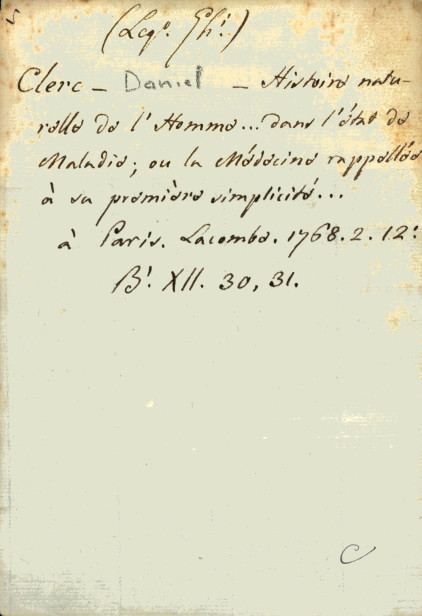 (Leg°. Gh.)
Clerc - Daniel - Histoire natu-
relle de l'Homme... dans l'état de
Maladie; ou la Médecine rappellée
à sa première simplicité...
à Paris. Lacombe. 1768. 2. 12.
B. XII. 30, 31.
C